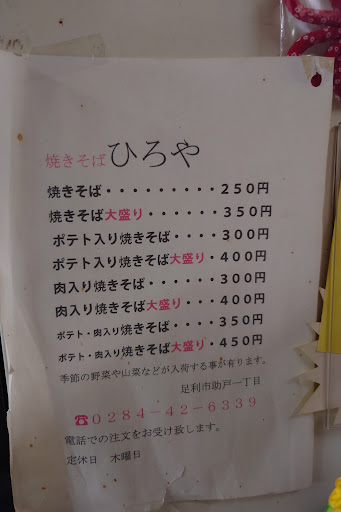 焼きそば ひろや
焼きそば・・・・・・・・・250円
焼きそば大盛り・・・・・・350円
ポテト入り焼きそば・・・・300円
ポテト入り焼きそば大盛り・400円
肉入り焼きそば・・・・・・300円
肉入り焼きそば大盛り・・・400円
ポテト・肉入り焼きそば・・・350円
ポテト・肉入り焼きそば大盛り・450円
季節の野菜や山菜などが入荷する事が有ります。
足利市助戸一丁目
☎0284-42-6339
電話での注文をお受け致します。
定休日 木曜日